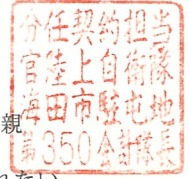 分任契約担当
官陸上自衛隊
海田市駐屯地
第350会計隊長
親
れたい